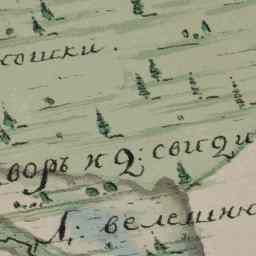 сошки.
воръ н 2: свиди
Л: велемин